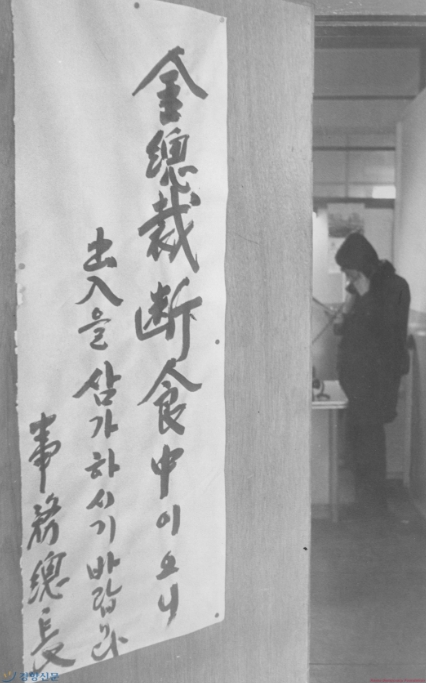 金總裁断食中이오니
出入을 삼가하시기 바랍니다
事務總長
경향신문